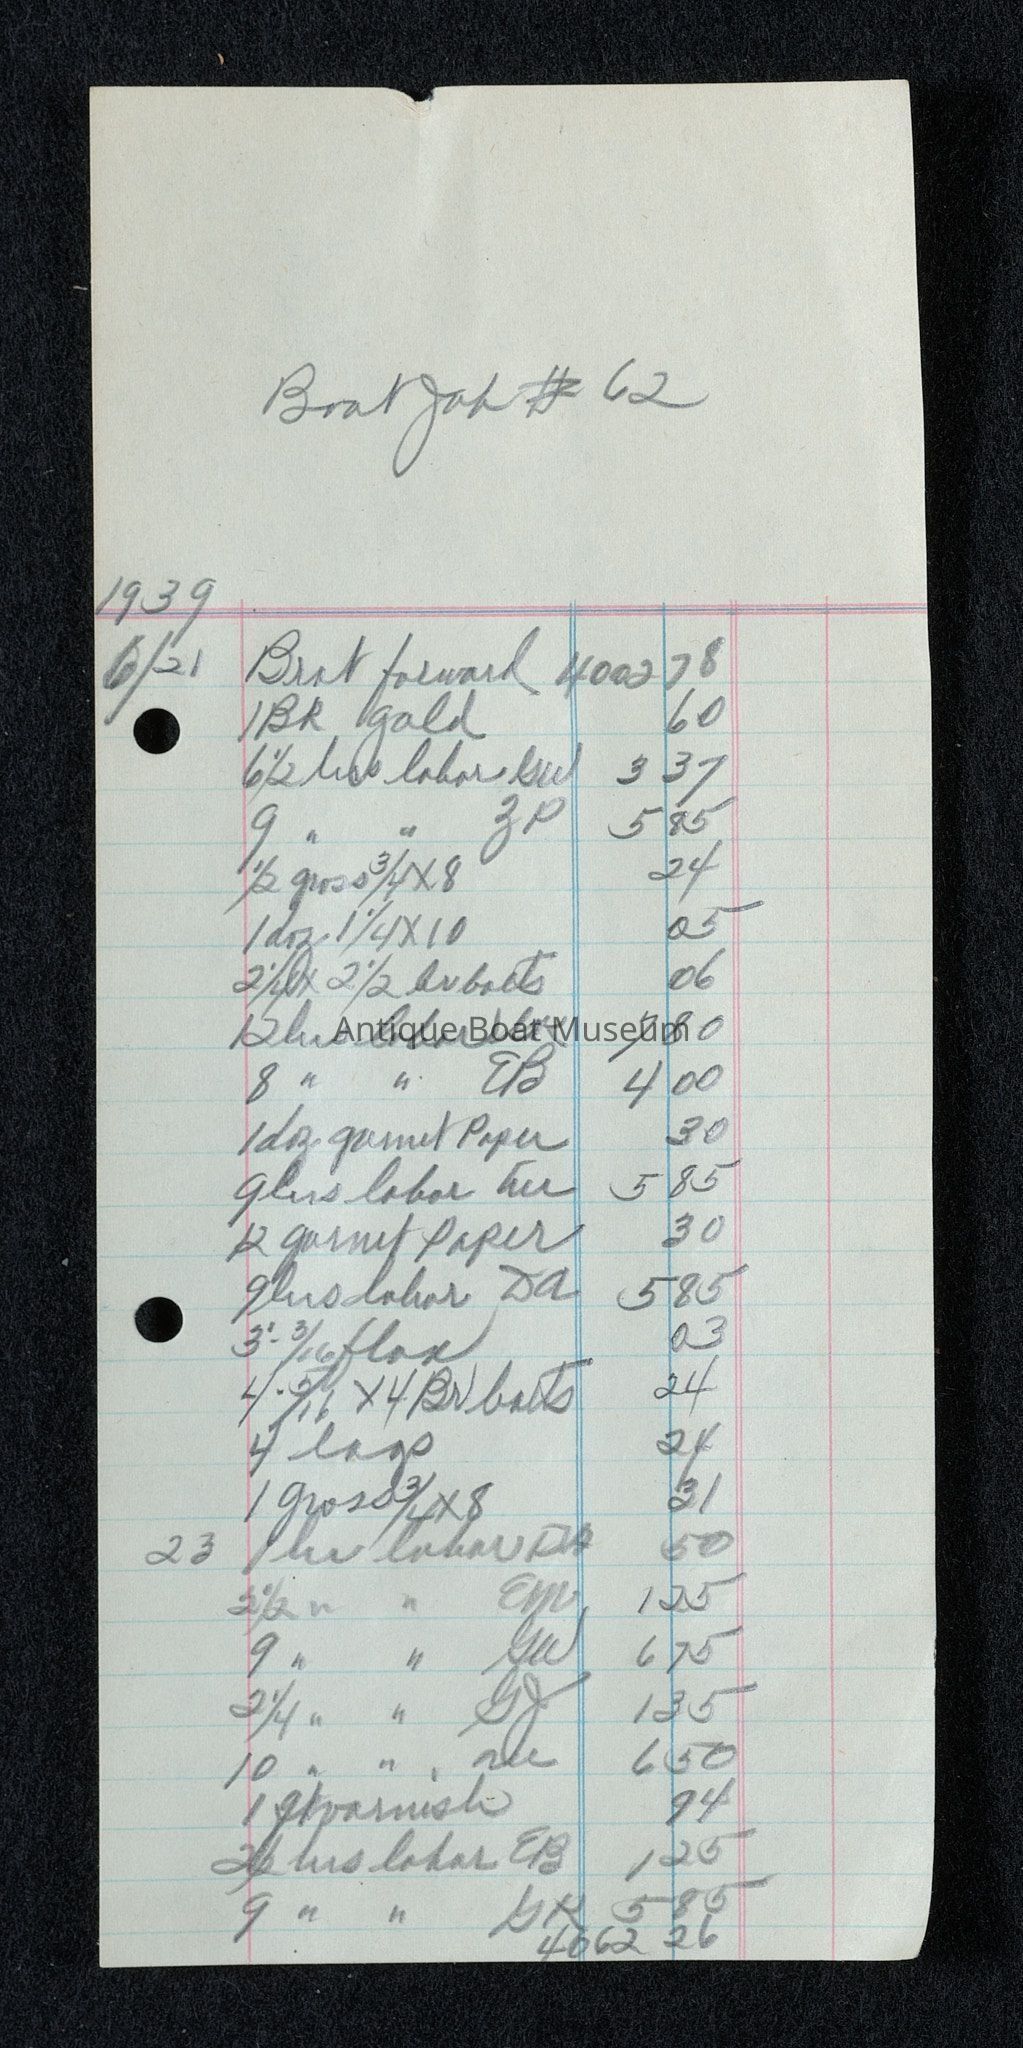 Boat Job # 62
1939
6/21 Brot forward 4002 78
1 BK gold 60
6 1/2 hrs labor GW 3 37
9 " " ZP 5 85
1/2 gross 3/4 X 8 24
1 doz 1 1/4 X 10 05
2 1/4 x 2 1/2 Br bolts 06
12 hrs labor 7 80
Antique Boat Museum
8 " " EB 4 00
1 doz garnet Paper 30
9 hrs labor 5 85
12 garnet Paper 30
9 hrs labor DA 5 85
3'- 3/16 flax 03
4 - 5/16 X 4 Br bolts 24
4 lags 24
1 gross 3/4 X 8 31
23 1 hr labor 50
2 1/2 " " EM 1 25
9 " " GW 6 75
2 1/4 " " GJ 1 35
10 " " 6 50
1 qt varnish 94
2 1/2 hrs labor EB 1 25
9 " " GK 5 85
4062 26